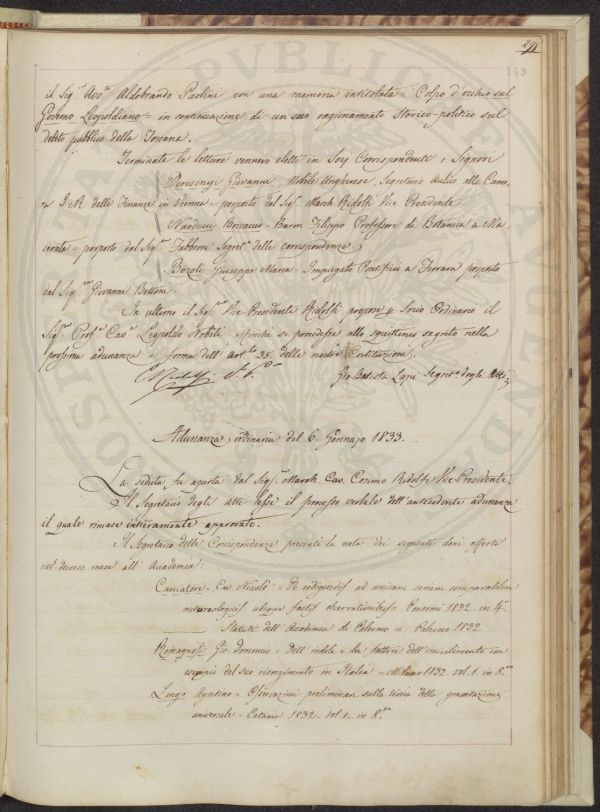 149
il Sig.r Avv.o Aldobrando Paolini con una memoria intitolata = Colpo d'occhio sul
Governo Leopoldiano = in continuazione di un suo ragionamento Storico-politico sul
debito pubblico della Toscana.
Terminate le letture vennero eletti in Soci Corrispondenti i Signori
Giovanni, Nobile Ungherese, Segretario Aulico alla Came-
ra I. R. delle Finanze in Vienna = proposto dal Sig.r March. Ridolfi Vice Presidente.
Narducci Boccaccio = Baron Filippo Professore di Botanica a Ma-
cerata = proposto dal Sig.r Fabbroni Segret.o delle corrispondenze;
Bozoli Giuseppe Maria = Impiegato Pontificio a Ferrara proposto
dal Sig.r Giovanni Bettoni.
In ultimo il Sig.r Vice Presidente Ridolfi propose a Socio Ordinario il
Sig.r Prof.e Cav.e Leopoldo Nobili affinchè si procedesse allo squittinio segreto nella
prossima adunanza a forma dell' Art.o 35 delle nostre Costituzioni.
C Ridolfi V. P.
Gio Batista Lapi Segret.o degli Atti
Adunanza ordinaria del 6. Gennajo 1833.
La seduta fu aperta dal Sig.r March. Cav. Cosimo Ridolfi Vice Presidente.
Il Segretario degli atti lesse il processo verbale dell' antecedente adunanza
il quale rimase intieramente approvato.
Il Segretario delle Corrispondenze presentò la nota dei seguenti doni offerti
nel decorso mese all' Accademia:
Cacciatore. Cav. Niccolò = De redigendis ad unicam seriem comparabilem
meteorologicis ubique factis observationibus = Panormi 1832. in 4.o
Statuti dell' Accademia di Palermo = Palermo 1832.
Romagnosi Gio. Domenico = Dell' indole e dei fattori dell' incivilimento con
esempio del suo risorgimento in Italia = Milano 1832. vol. 1. in 8.vo
Longo Agostino = Osservazioni preliminari sulla teoria della gravitazione
universale = Catania 1832. vol. 1. in 8.vo